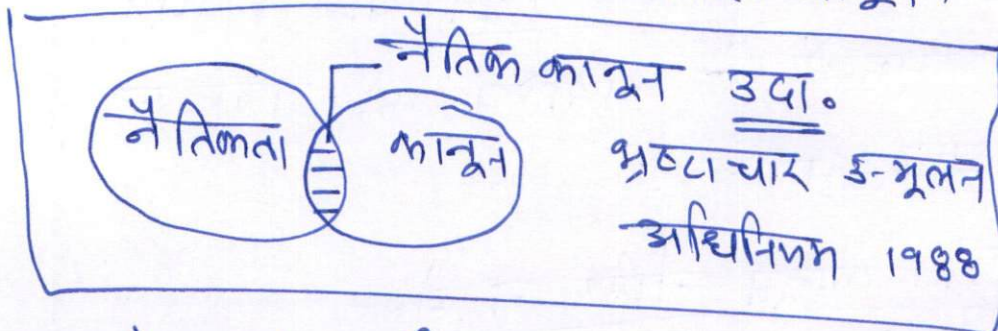 नैतिक कानून उदा.
नैतिकता कानून भ्रष्टाचार उन्मूलन
अधिनियम 1988